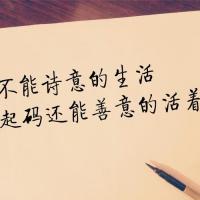 不能诗意的生活
起码还能善意的活着